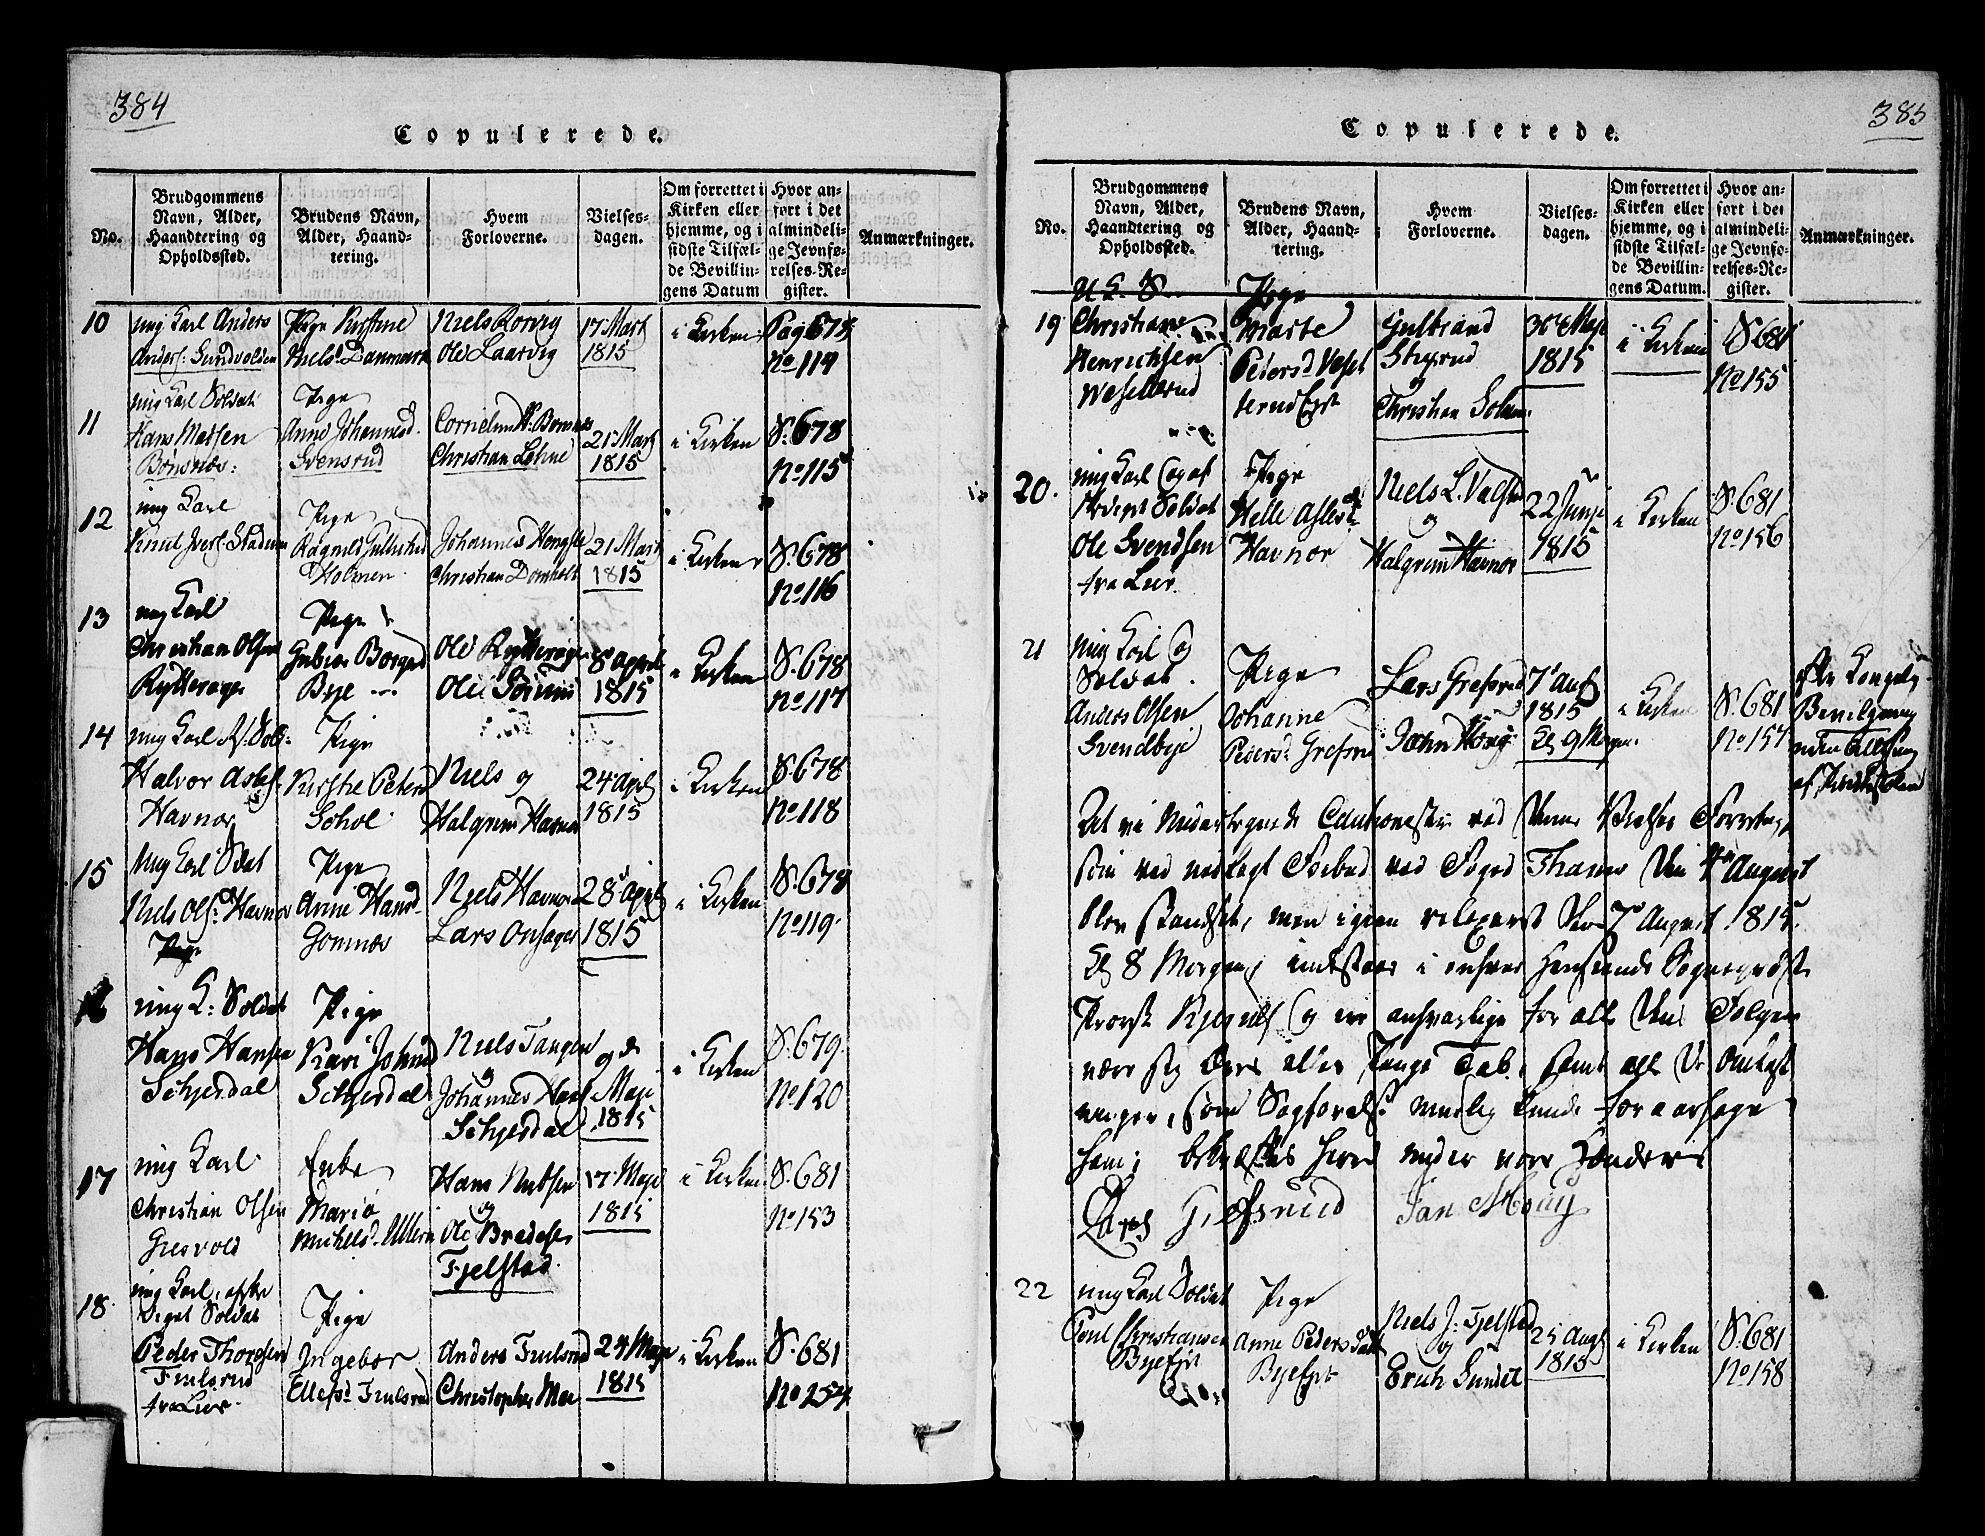 384
Copulerede.
No.
Brudgommens Navn, Alder, Haandtering og Opholdssted.
Brudens Navn, Alder, Haandtering.
Hvem Forloverne.
Vielses-dagen.
Om forrettet i Kirken eller hjemme, og i sidste Tilfælde Bevillingens Datum
Hvor anført i det almindelige Jevnførelses-Register.
Anmærkninger.
10
ung Karl Anders
Anders: Gundvolden
Pige Kirstine
Niels: Danmark
Niels Rorvig
Ole Laarvig
17 Mart
1815
i Kirken
Pag 678
No 114
11
ung Karl Soldat
Hans Madsen
Bønsnæs:
Pige
Anne Johannesd.
Svensrud
Christian Lehne
21 Mart
1815
i Kirken
S. 678
No 115
12
ung Karl
Knud Ivers: Stadum
Pige
Ragnild Gulbrsd
Holmen
Johannes Hongsle
Christian Domholt
21 Mart
1815
i Kirken
S. 678
No 116
13
ung Karl
Christian Olsen
Rytterager
Pige
Bye
Ole Rytterager
8 April
1815
i Kirken
S. 678
No 117
14
ung Karl
Halvor
Havnor
Pige
Kirstie Peters
Sohol
Niels og
Halgrim Havnor
24 April
1815
i Kirken
S. 678
No 118
15
ung Karl Soldat
Niels Ols: Havnor
Pige
Anne Hansd.
Gomnæs
Niels Havnor
Lars Onsager
28 April
1815
i Kirken
S. 678
No 119.
16
ung K: Soldat
Hans Hansen
Schjerdal
Pige
Kari Johnsd
Schjerdal
Niels Tangen
og
Johannes Hans
Schjerdal
9de
Maje
1815
i Kirken
S. 679.
No 120
17
ung Karl
Christian Olsen
Gresvold
Enke
Mariø
Michelsd. Ullern
Hans Knudsen
og
Ole Bredesen
Fjelstad
17 Maje
1815
i Kirken
S. 681
No 153
18.
ung Karl,
Soldat
Peder Thorgsen
Finlsrud
fra Lier
Pige
Ingebor
Ellefsd Finlsrud
Anders Finlsrud
Christopher Moe
24 Maje
1815
i Kirken
S. 681
No 254
385
Copulerede.
No.
Brudgommens Navn, Alder, Haandtering og Opholdssted.
Brudens Navn, Alder, Haandtering.
Hvem Forloverne.
Vielses-dagen.
Om forrettet i Kirken eller hjemme, og i sidste Tilfælde Bevillingens Datum.
Hvor anført i det almindelige Jevnførelses-Register.
Anmærkninger.
19
Christian
Henrichsen
Weselterud
Pige
Marte
Petersd Vesel
terud Ejet
Gulbrand
Stixrud
og
Christian Solum
30te Maje
1815
i Kirken
S. 681
No 155
20.
ung Karl
Soldat
Ole Svendsen
fra Lier
Pige
Helle
Havnor
Niels L. Valstad
og
Halgrim Havnor
22 Junje
1815
i Kirken
S. 681
No 156
21
ung Karl og
Soldat.
Anders Olsen
Svendbye
Pige
Johanne
Pedersd. Grefsrud
Lars Grefsrud
John Moug
7de Aug
1815
Kl 9 Morgen.
i Kirken
S. 681
No 157
efter Kongelig
Bevilgning
uden Tillysning
At vi Undertegnede Cautionister ved denne Vielses Forretning
som ved nedlagt Forbud ved Foged Thams den 4de August
blev standset, men igien relaxeret den 7de August 1815
Kl 8 Morgen indestaar i enhver Henseende Sogneprest
Provst Kjerulf og ere ansvarlige for alle dens Følger
være sig Ære eller Penge Tab, samt alle de Omkost
ninger, som Sagførelse muelig kunde foraarsage
ham; bekræftes herved under vore Hænder
Lars Grefsrud
Jan Moug
22
ung Karl Soldat
Poul Christiansen
Byeejet
Pige
Anne Pedersdatt
Byeejet
Niels J: Fjelstad
og
Erich Sundet
25 Aug
1815
i Kirken
S. 681
No 158